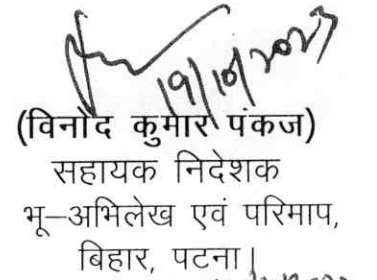 19/10/2023
(विनोद कुमार पंकज)
सहायक निदेशक
भू–अभिलेख एवं परिमाप,
बिहार, पटना।